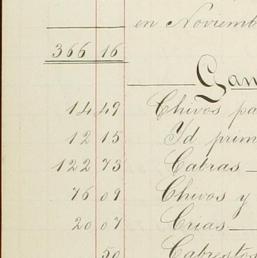 en Noviemb
366 16
Gan
14 49 Chivos pa
12 15 Id prim
122 73 Cabras —
76 09 Chivos y
20 07 Crias —
50 Cabrestos